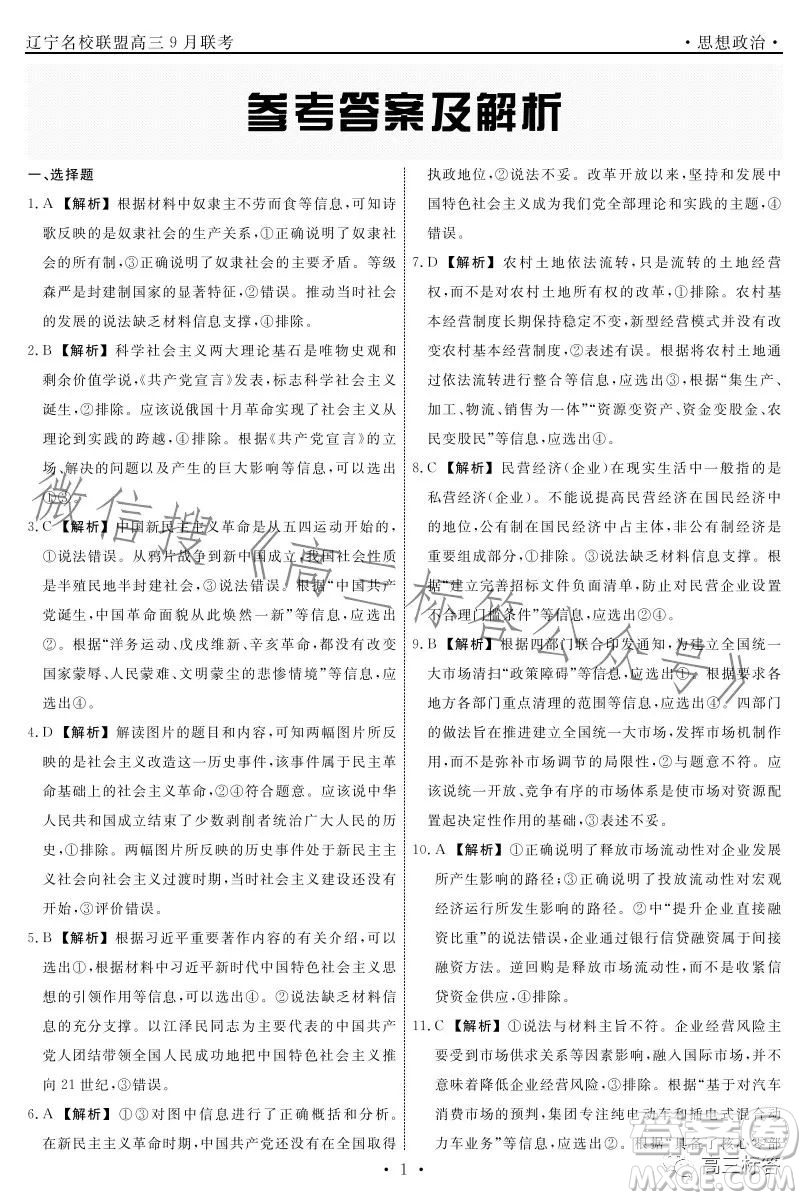 辽宁名校联盟高三9月联考
·思想政治·
参考答案及解析
一、选择题
1. A 【解析】根据材料中奴隶主不劳而食等信息,可知诗
歌反映的是奴隶社会的生产关系,①正确说明了奴隶社
会的所有制,③正确说明了奴隶社会的主要矛盾。等级
森严是封建制国家的显著特征,②错误。推动当时社会
的发展的说法缺乏材料信息支撑,④排除。
2. B 【解析】科学社会主义两大理论基石是唯物史观和
剩余价值学说,《共产党宣言》发表,标志科学社会主义
诞生,②排除。应该说俄国十月革命实现了社会主义从
理论到实践的跨越,④排除。根据《共产党宣言》的立
场、解决的问题以及产生的巨大影响等信息,可以选出
①③。
3. C 【解析】中国新民主主义革命是从五四运动开始的,
①说法错误。从鸦片战争到新中国成立,我国社会性质
是半殖民地半封建社会,③说法错误。根据“中国共产
党诞生,中国革命从此焕然一新”等信息,应选出
②。根据“洋务运动、戊戌维新、辛亥革命都未能改变
国家蒙辱、人民蒙难、文明蒙尘的悲惨情境”等信息,应
选出④。
4. D 【解析】解读图片的题目和内容,可知两幅图片所反
映的是社会主义改造这一历史事件,该事件属于新民主
革命基础上的社会主义革命,②④符合题意。应该说中华
人民共和国成立结束了少数剥削者统治广大人民的历
史,①排除。两幅图片的历史事件所处的时期是新民主
主义社会向社会主义过渡时期,当时新中国尚未进入社会
主义社会,③评价错误。
5. B 【解析】根据习近平重要著作内容的有关介绍,可以
选出①④。材料中未涉及习近平新时代中国特色社会主义思想
的引领作用的相关信息,②的说法缺乏材料信
息的充分支撑。以江泽民同志为主要代表的中国共产
党人团结带领全党全国各族人民成功地把中国特色社会主义推
向21世纪,③错误。
6. A 【解析】①③对图中信息的概括和分析正确。
在新民主主义革命时期,中国共产党还没有在全国取得
执政地位,②说法不妥。改革开放以来,坚持和发展中
国特色社会主义成为我们党全部理论和实践的主题,④
错误。
7. D 【解析】农村土地依法流转,只是流转的土地经营
权,而不是农村土地所有权的改革,①排除。农村基
本经营制度长期保持稳定不变,新型经营模式并没有改
变农村基本经营制度,②排除。根据“集生产、
加工、物流、销售为一体”“资源变资产、资金变股金、农
民变股民”等信息,应选出④。
8. C 【解析】民营经济(企业)在现实生活中一般指的是
私营经济(企业)。不能说提高民营经济在国民经济中
的地位,公有制在国民经济中占主体,非公有制经济是
重要组成部分,①排除。③说法缺乏材料信息支撑。
根据“建立完善招标文件负面清单,防止对民营企业设置
不合理门槛条件”等信息,应选出②④。
9. B 【解析】根据四部门联合印发通知,为建立全国统一
大市场清扫“政策障碍”等信息,应选出①。根据要求各
地方各部门重点清理的范围等信息,应选出④。四部门
的做法旨在建设全国统一大市场,发挥市场机制的作用,
而不是弥补市场调节的局限性,②表述不妥。建设
统一开放、竞争有序的市场体系是使市场对资源配
置起决定性作用的基础,③表述不妥。
10. A 【解析】①正确说明了释放市场流动性对企业发展
所产生影响的路径;③正确说明了投放流动性对宏观
经济所发生影响的路径。②中“提升企业直接融
资比重”的说法错误,企业通过银行信贷融资属于间接
融资方法。逆回购是释放市场流动性,有利于增加市场
信贷资金供应,④排除。
11. C 【解析】①说法与材料主旨不符。企业经营风险主
要受到市场供求关系等因素影响,融入国际市场,并不
意味着能够降低企业经营风险,③排除。基于对汽车
消费市场的预判,集团发布纯电动车和插电式混合动
力车为业务发展方向。根据“具备了核心零部
·1·
微信搜《高三标答公众号》
答案圈
MXQE.COM
高三标答